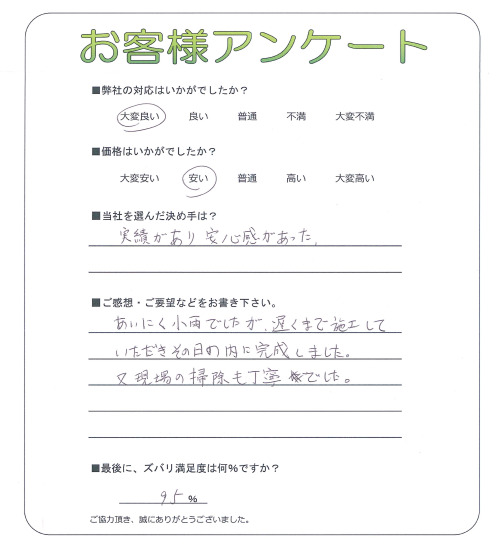 お客様アンケート
■弊社の対応はいかがでしたか？
大変良い 良い 普通 不満 大変不満
■価格はいかがでしたか？
大変安い 安い 普通 高い 大変高い
■当社を選んだ決め手は？
実績があり 安心感があった。
■ご感想・ご要望などをお書き下さい。
あいにく小雨でしたが、遅くまで施工して
いただきその日の内に完成しました。
又現場の掃除も丁寧でした。
■最後に、ズバリ満足度は何%ですか？
95 %
ご協力頂き、誠にありがとうございました。